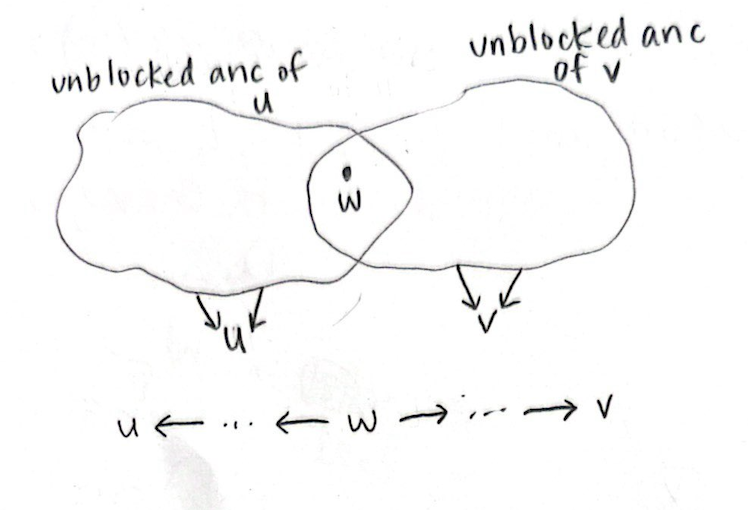 unblocked anc of
u
unblocked anc
of v
w
u
v
u ← ... ← w → ... → v